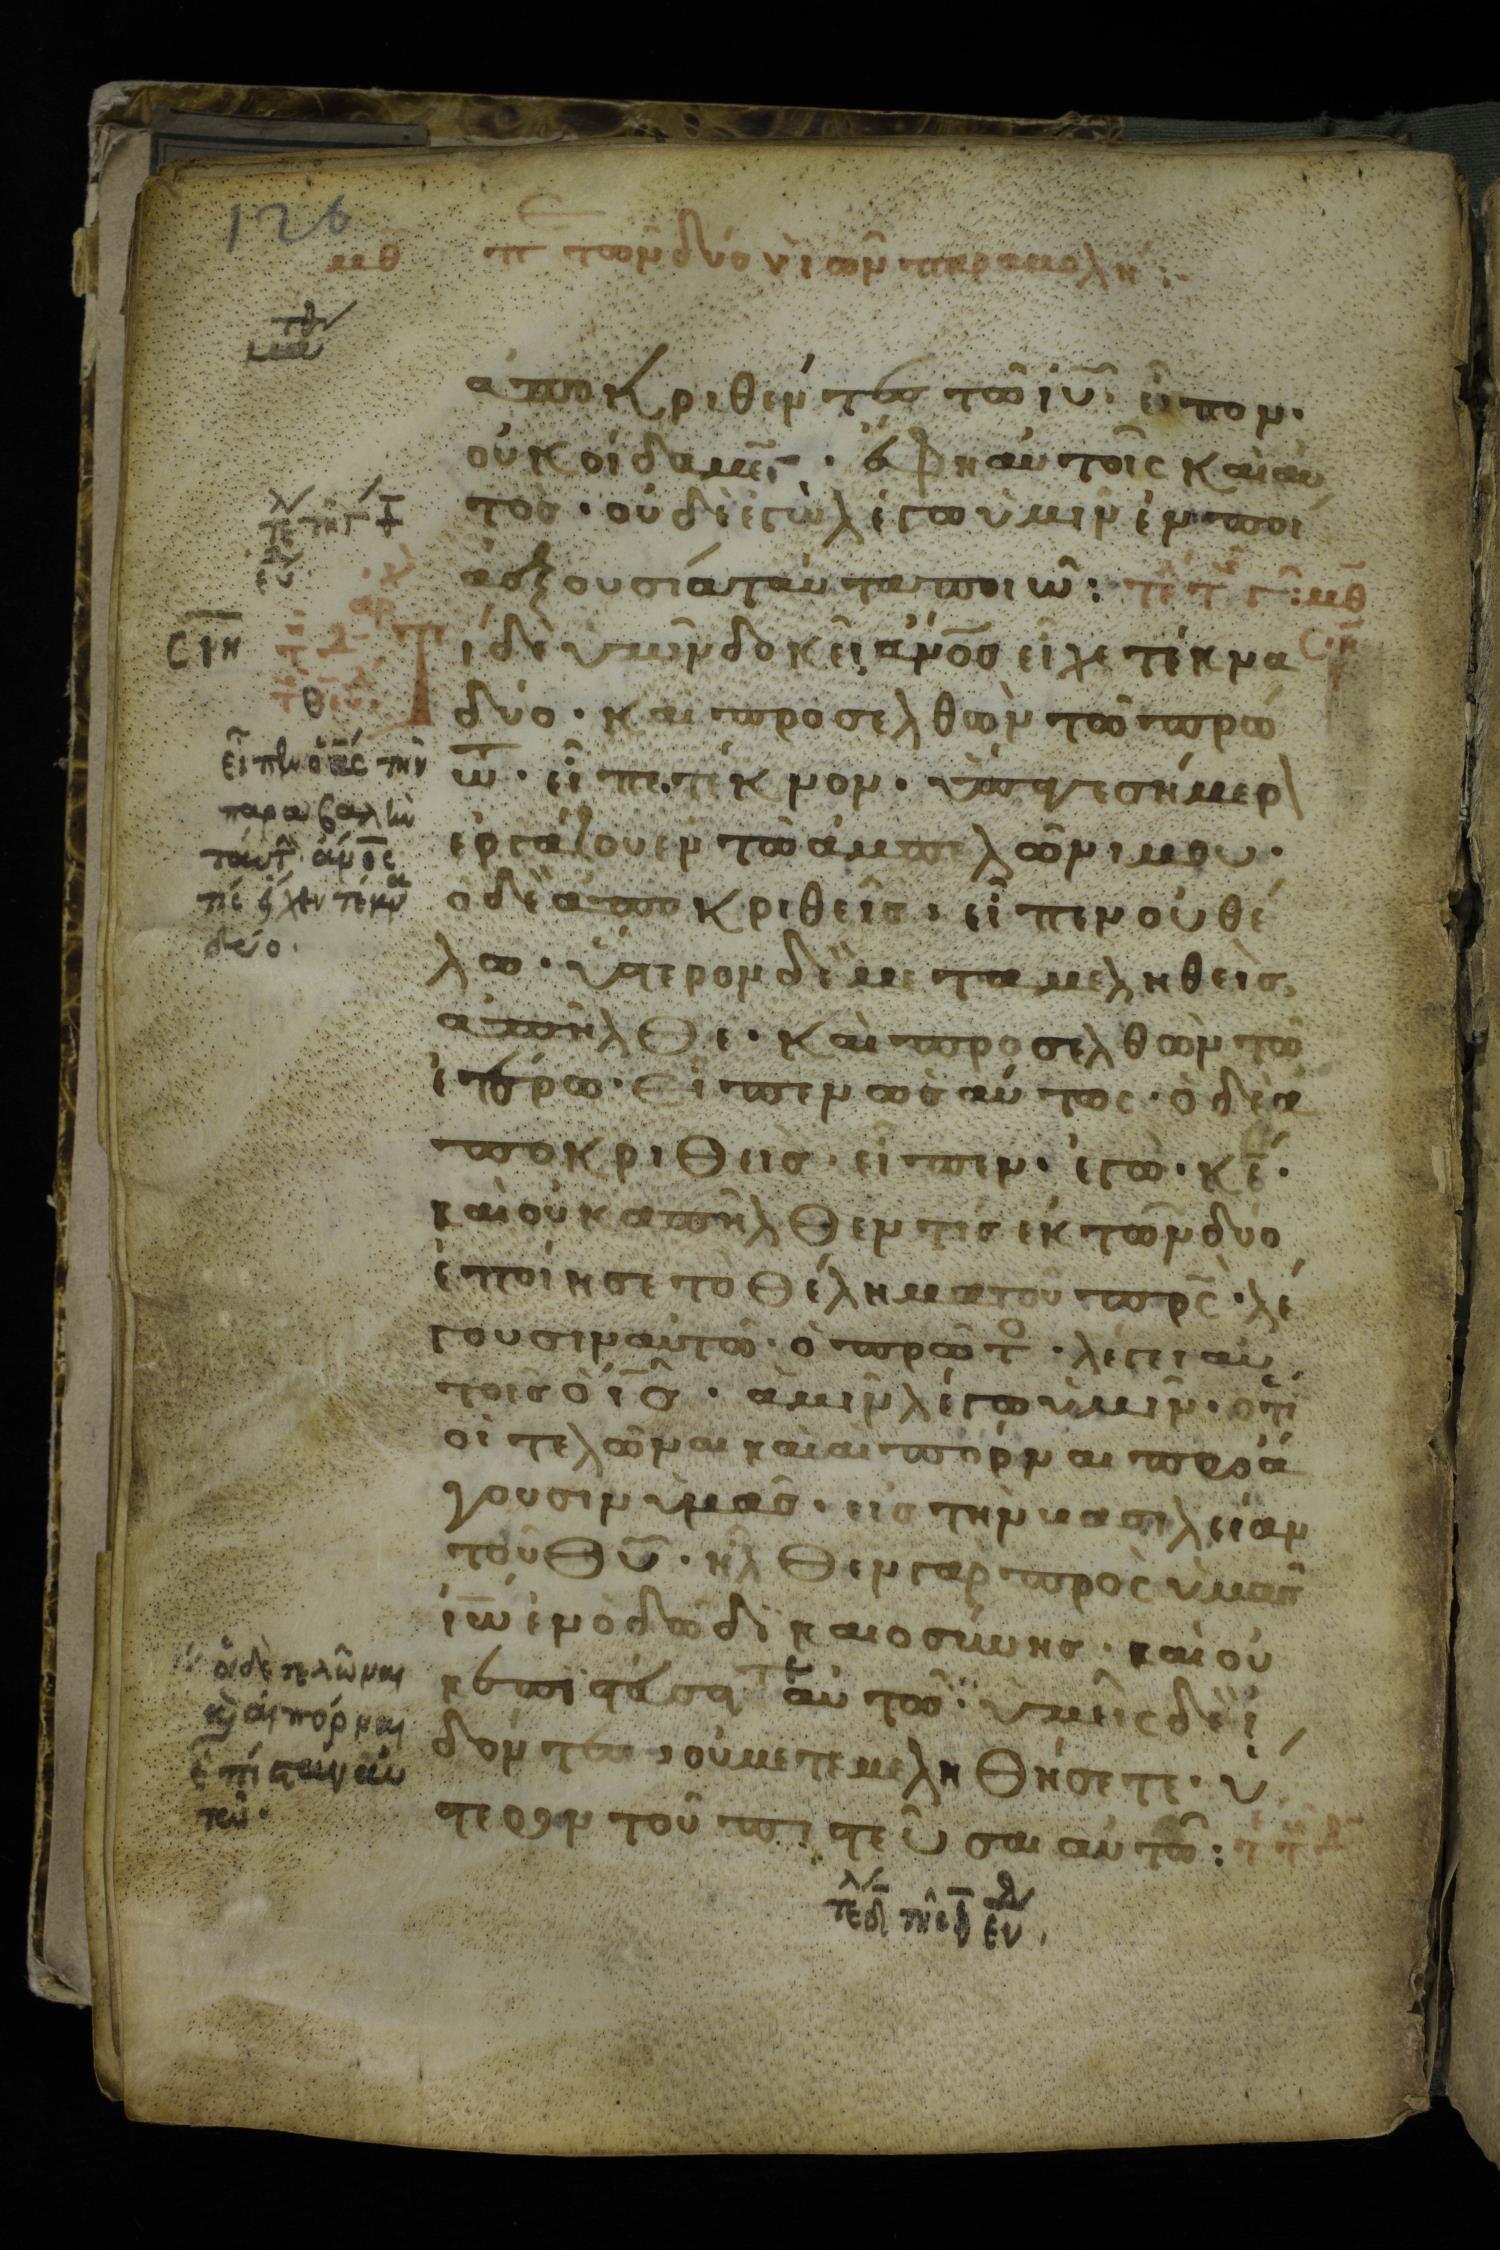 126
μθ π τῶν δύο υἱῶν παραβολή:-
ἀποκριθέντες τῶ ἰῦ· εἶπον·
οὐκ οἴδαμεν· ἔφη αὐτοῖς καὶ αὐ
τὸς· οὐδὲ ἐγὼ λέγω ὑμῖν ἐν ποί
α ἐξουσία ταῦτα ποιῶ:
σιη
Τί δὲ ὑμῖν δοκεῖ; ἄνος εἶχε τέκνα
δύο· καὶ προσελθὼν τῶ πρώ
τω· εἶπε· τέκνον· ὕπαγε σήμερ
ἐργάζου ἐν τῶ ἀμπελῶνι μου·
ὁ δὲ ἀποκριθεὶς· εἶπεν οὐ θέ
λω· ὕστερον δὲ μεταμεληθεὶς
ἀπῆλθε· καὶ προσελθὼν τῶ
ἑτέρω· εἶπεν ὡσαύτως· ὁ δὲ ἀ
ποκριθεὶς· εἶπεν· ἐγὼ· κε·
καὶ οὐκ ἀπῆλθεν τίς ἐκ τῶν δύο
ἐποίησε τὸ θέλημα τοῦ πρς· λέ
γουσιν αὐτῶ· ὁ πρῶτο· λέγει αὐ
τοῖς ὁ ἰς· ἀμὴν λέγω ὑμῖν· ὅτι
οἱ τελῶναι καὶ αἱ πόρναι προά
γουσιν ὑμᾶς· εἰς τὴν βασιλείαν
τοῦ θυ· ἦλθεν γὰρ πρὸς ὑμᾶς
ἰω ἐν ὁδῶ δικαιοσύνης· καὶ οὐ
κ ἐπιστεύσατε αὐτῶ· ὑμεῖς δὲ ἰ
δόντες· οὐ μετεμελήθησετε· ὕ
στερον τοῦ πιστεῦσαι αὐτῶ:
εἶπεν ὁ κς τὴν
παραβολὴν
ταύτ ἄνος
τίς εἶχεν τέκνα
δύο·
οἱ δὲ τελῶναι
καὶ αἱ πόρναι
ἐπίστευσαν αὐ
τῶ·